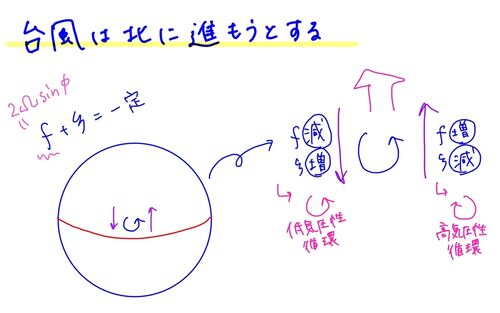 台風は北に進もうとする
2Ωsinφ
f+ζ=一定
f減
ζ増
低気圧性
循環
f増
ζ減
高気圧性
循環